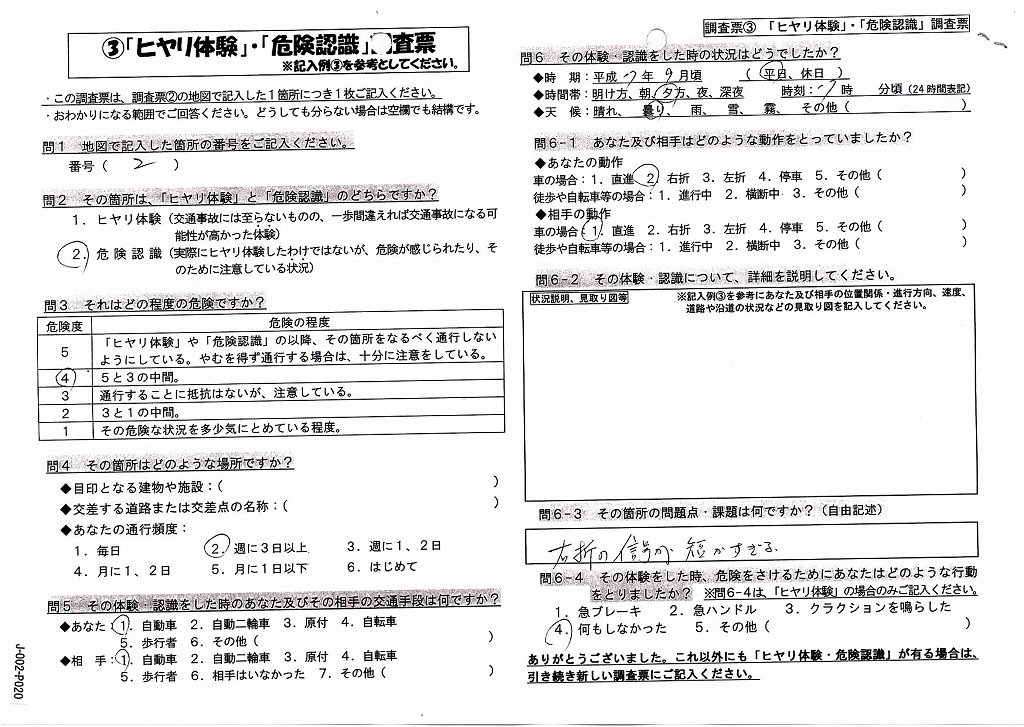 ③「ヒヤリ体験」・「危険認識」査票
※記入例③を参考としてください。
・この調査票は、調査票②の地図で記入した１箇所につき１枚ご記入ください。
・おわかりになる範囲でご回答ください。どうしても分らない場合は空欄でも結構です。
問１　地図で記入した箇所の番号をご記入ください。
番号（　2　）
問２　その箇所は、「ヒヤリ体験」と「危険認識」のどちらですか？
１．ヒヤリ体験（交通事故には至らないものの、一歩間違えれば交通事故になる可
能性が高かった体験）
２．危険認識（実際にヒヤリ体験したわけではないが、危険が感じられたり、そ
のために注意している状況）
問３　それはどの程度の危険ですか？
危険度　危険の程度
５　「ヒヤリ体験」や「危険認識」の以降、その箇所をなるべく通行しない
ようにしている。やむを得ず通行する場合は、十分に注意をしている。
４　５と３の中間。
３　通行することに抵抗はないが、注意している。
２　３と１の中間。
１　その危険な状況を多少気にとめている程度。
問４　その箇所はどのような場所ですか？
◆目印となる建物や施設：（　）
◆交差する道路または交差点の名称：（　）
◆あなたの通行頻度：
１．毎日　２．週に３日以上　３．週に１、２日
４．月に１、２日　５．月に１日以下　６．はじめて
問５　その体験・認識をした時のあなた及びその相手の交通手段は何ですか？
◆あなた：１．自動車　２．自動二輪車　３．原付　４．自転車
５．歩行者　６．その他（　）
◆相　手：１．自動車　２．自動二輪車　３．原付　４．自転車
５．歩行者　６．相手はいなかった　７．その他（　）
J-002-P020
調査票③　「ヒヤリ体験」・「危険認識」調査票
問６　その体験・認識をした時の状況はどうでしたか？
◆時　期：平成　年　9月頃　（　平日、休日　）
◆時間帯：明け方、朝、夕方、夜、深夜　時刻：　時　分頃（24時間表記）
◆天　候：晴れ、　曇り、　雨、　雪、　霧、　その他（　）
問６-１　あなた及び相手はどのような動作をとっていましたか？
◆あなたの動作
車の場合：１．直進　２．右折　３．左折　４．停車　５．その他（　）
徒歩や自転車等の場合：１．進行中　２．横断中　３．その他（　）
◆相手の動作
車の場合：１．直進　２．右折　３．左折　４．停車　５．その他（　）
徒歩や自転車等の場合：１．進行中　２．横断中　３．その他（　）
問６-２　その体験・認識について、詳細を説明してください。
状況説明、見取り図等　※記入例③を参考にあなた及び相手の位置関係・進行方向、速度、
道路や沿道の状況などの見取り図を記入してください。
問６-３　その箇所の問題点・課題は何ですか？（自由記述）
右折の信号が短かすぎる
問６-４　その体験をした時、危険をさけるためにあなたはどのような行動
をとりましたか？　※問６-４は、「ヒヤリ体験」の場合のみご記入ください。
１．急ブレーキ　２．急ハンドル　３．クラクションを鳴らした
４．何もしなかった　５．その他（　）
ありがとうございました。これ以外にも「ヒヤリ体験・危険認識」が有る場合は、
引き続き新しい調査票にご記入ください。